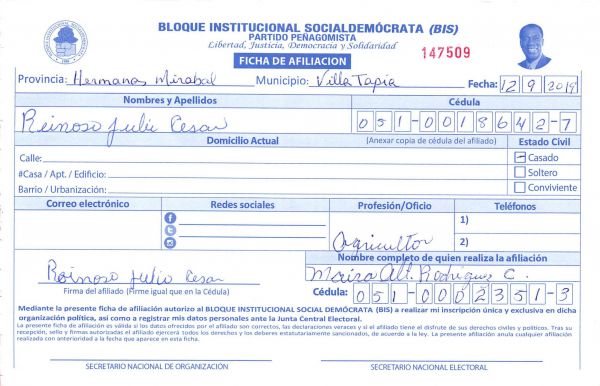 BLOQUE INSTITUCIONAL SOCIALDEMÓCRATA (BIS)
PARTIDO PEÑAGOMISTA
Libertad, Justicia, Democracia y Solidaridad
FICHA DE AFILIACION
147509
Provincia: Hermanas Mirabal Municipio: Villa Tapia Fecha: 12 9 2019
Nombres y Apellidos Cédula
Reinoso Julio Cesar 051-0018642-7
Domicilio Actual (Anexar copia de cédula del afiliado) Estado Civil
Calle: Casado
#Casa / Apt. / Edificio: Soltero
Barrio / Urbanización: Conviviente
Correo electrónico Redes sociales Profesión/Oficio Teléfonos
1)
Agricultor 2)
Nombre completo de quien realiza la afiliación
Reinoso Julio Cesar Maira Alt. Rodriguez C.
Firma del afiliado (Firme igual que en la Cédula) Cédula: 051-0002351-3
Mediante la presente ficha de afiliación autorizo al BLOQUE INSTITUCIONAL SOCIAL DEMÓCRATA (BIS) a realizar mi inscripción única y exclusiva en dicha
organización política, así como a registrar mis datos personales ante la Junta Central Electoral.
La presente ficha de afiliación es válida si los datos ofrecidos por el afiliado son correctos, las declaraciones veraces y si el afiliado tiene el disfrute de sus derechos civiles y políticos. Tras su
recepción, sello y firmas autorizadas el afiliado ejercerá todos los derechos y los deberes estatutariamente sancionados, de acuerdo a la ley. La presente afiliación anula cualquier afiliación
realizada con anterioridad a la fecha que aparece en esta ficha.
SECRETARIO NACIONAL DE ORGANIZACIÓN SECRETARIO NACIONAL ELECTORAL